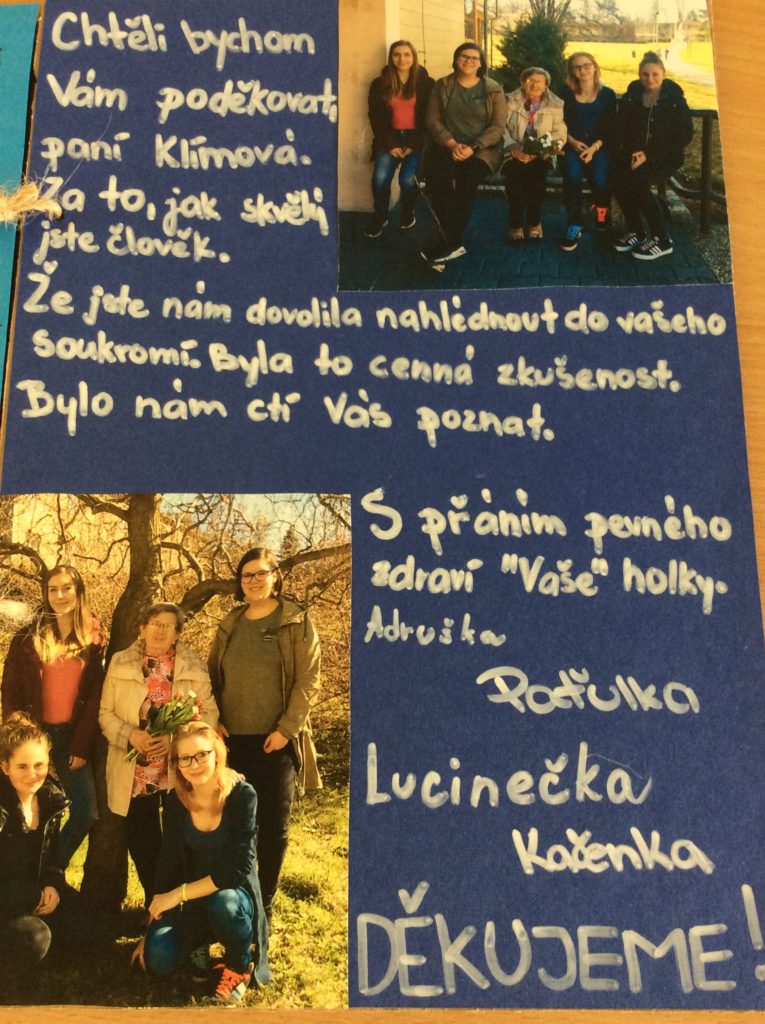 Chtěli bychom
Vám poděkovat,
paní Klímová.
Za to, jak skvělý
jste člověk.
Že jste nám dovolila nahlédnout do vašeho
soukromí. Byla to cenná zkušenost.
Bylo nám ctí Vás poznat.
S přáním pevného
zdraví "Vaše" holky.
Adruška
Paťulka
Lucinečka
Kačenka
DĚKUJEME!